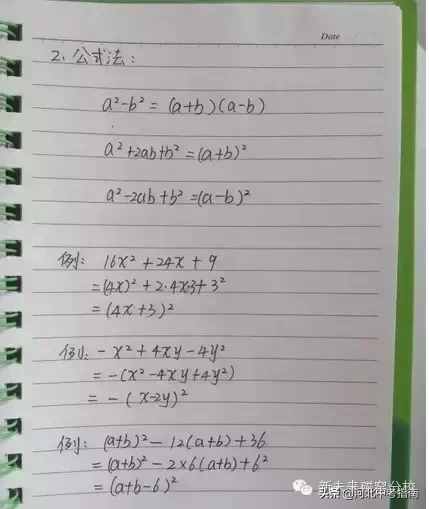 Date
2、公式法:
a²-b² = (a+b)(a-b)
a²+2ab+b² = (a+b)²
a²-2ab+b² = (a-b)²
例: 16x² + 24x + 9
= (4x)² + 2·4x·3 + 3²
= (4x+3)²
例: -x² + 4xy - 4y²
= -(x²-4xy+4y²)
= -(x-2y)²
例: (a+b)² - 12(a+b) + 36
= (a+b)² - 2×6(a+b) + 6²
= (a+b-6)²
头条 @河北中考指南